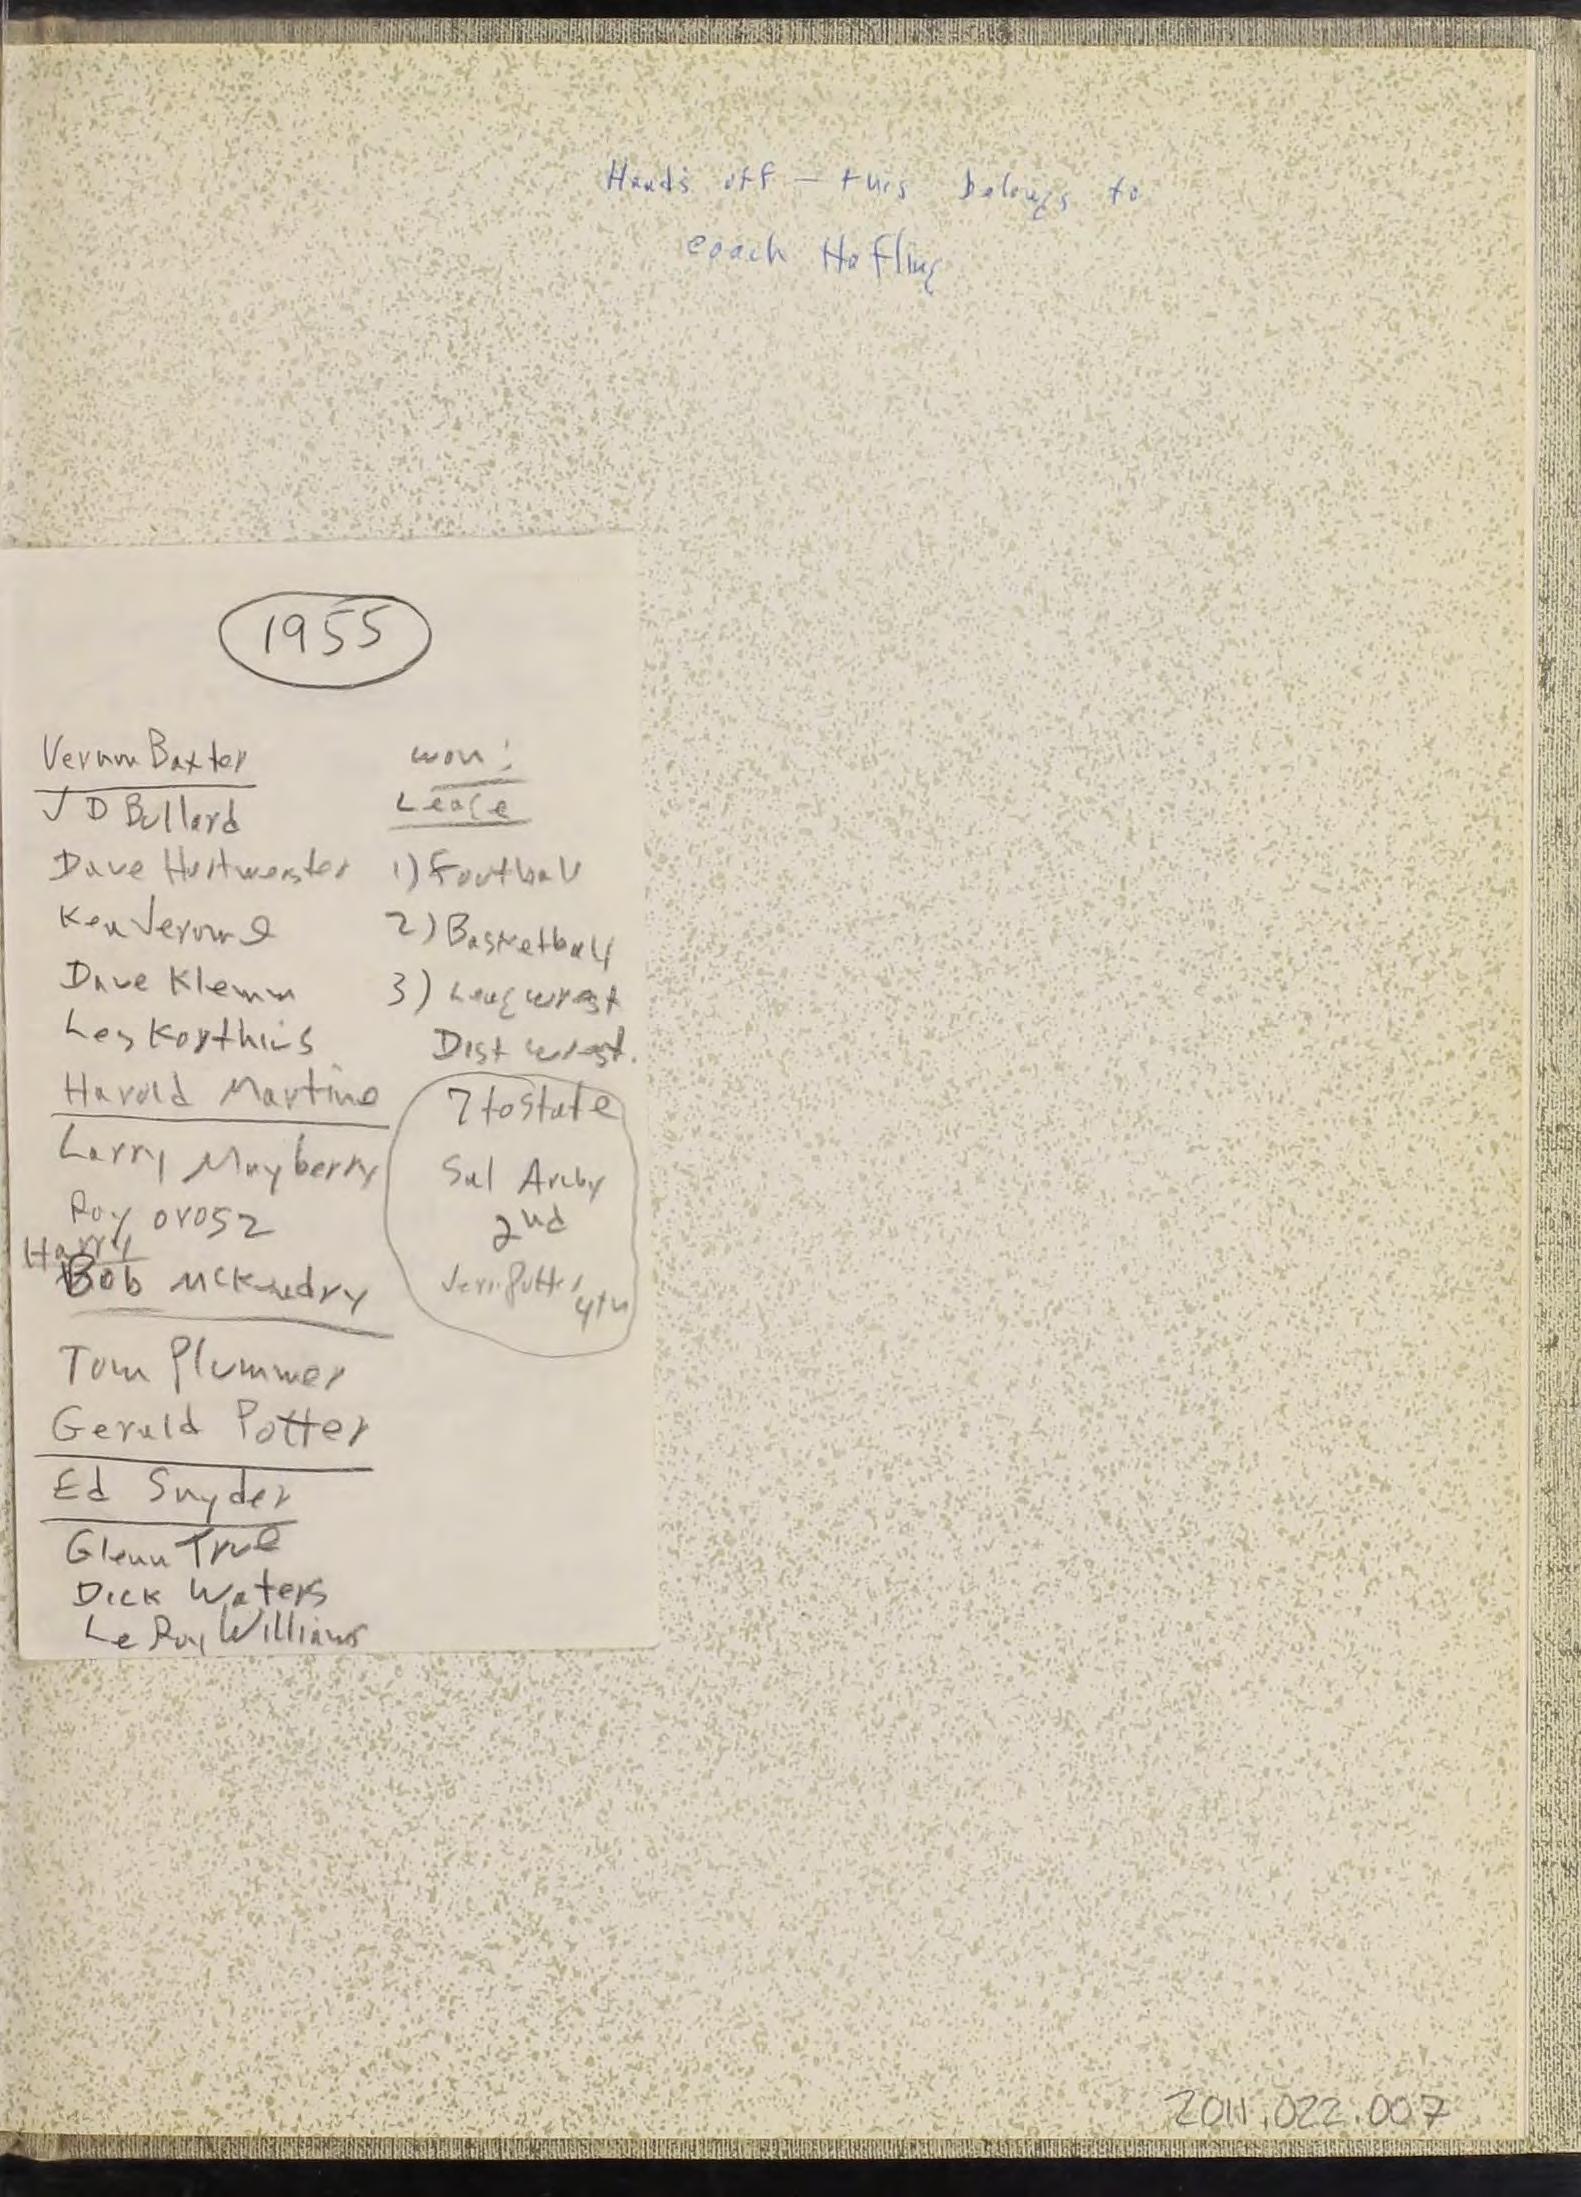 Hands off — this belongs to
coach Hofling
1955
Vernon Baxter
J D Bullard
Dave Hertweester
Ken Jerome
Dave Klemm
Les Korthuis
Harold Martine
Larry Mayberry
Roy Orosz
Harry
Bob McKendry
Tom Plummer
Gerald Potter
Ed Snyder
Glenn True
Dick Waters
LeRoy Williams
won:
League
1) Football
2) Basketball
3) Leag wrest
Dist wrest.
7 to state
Sal
2nd
Potter
4th
2011.022.007